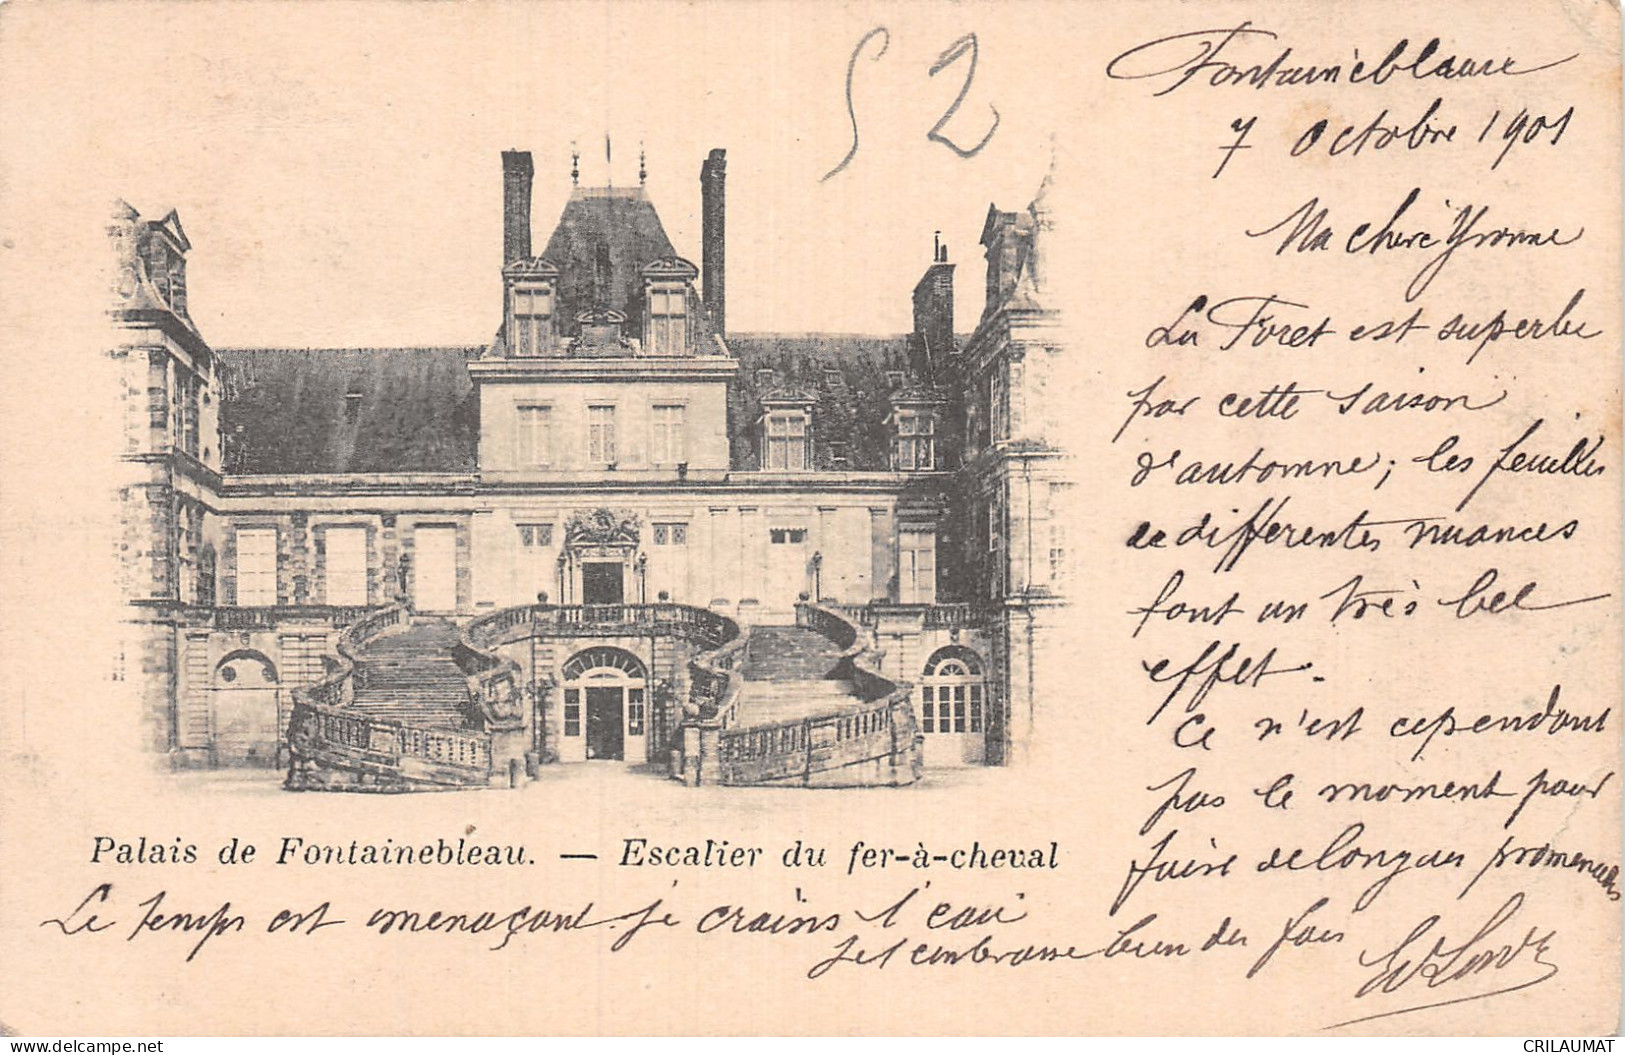 52
Fontainebleau
7 Octobre 1901
Ma chère Yvonne
La Foret est superbe
par cette saison
d'automne; les feuilles
de differentes nuances
font un très bel
effet.
Ce n'est cependant
pas le moment pour
faire de longues promenades
Palais de Fontainebleau. — Escalier du fer-à-cheval
Le temps est menaçant je crains l'eau
Je t'embrasse bien des fois
delcampe.net
CRILAUMAT